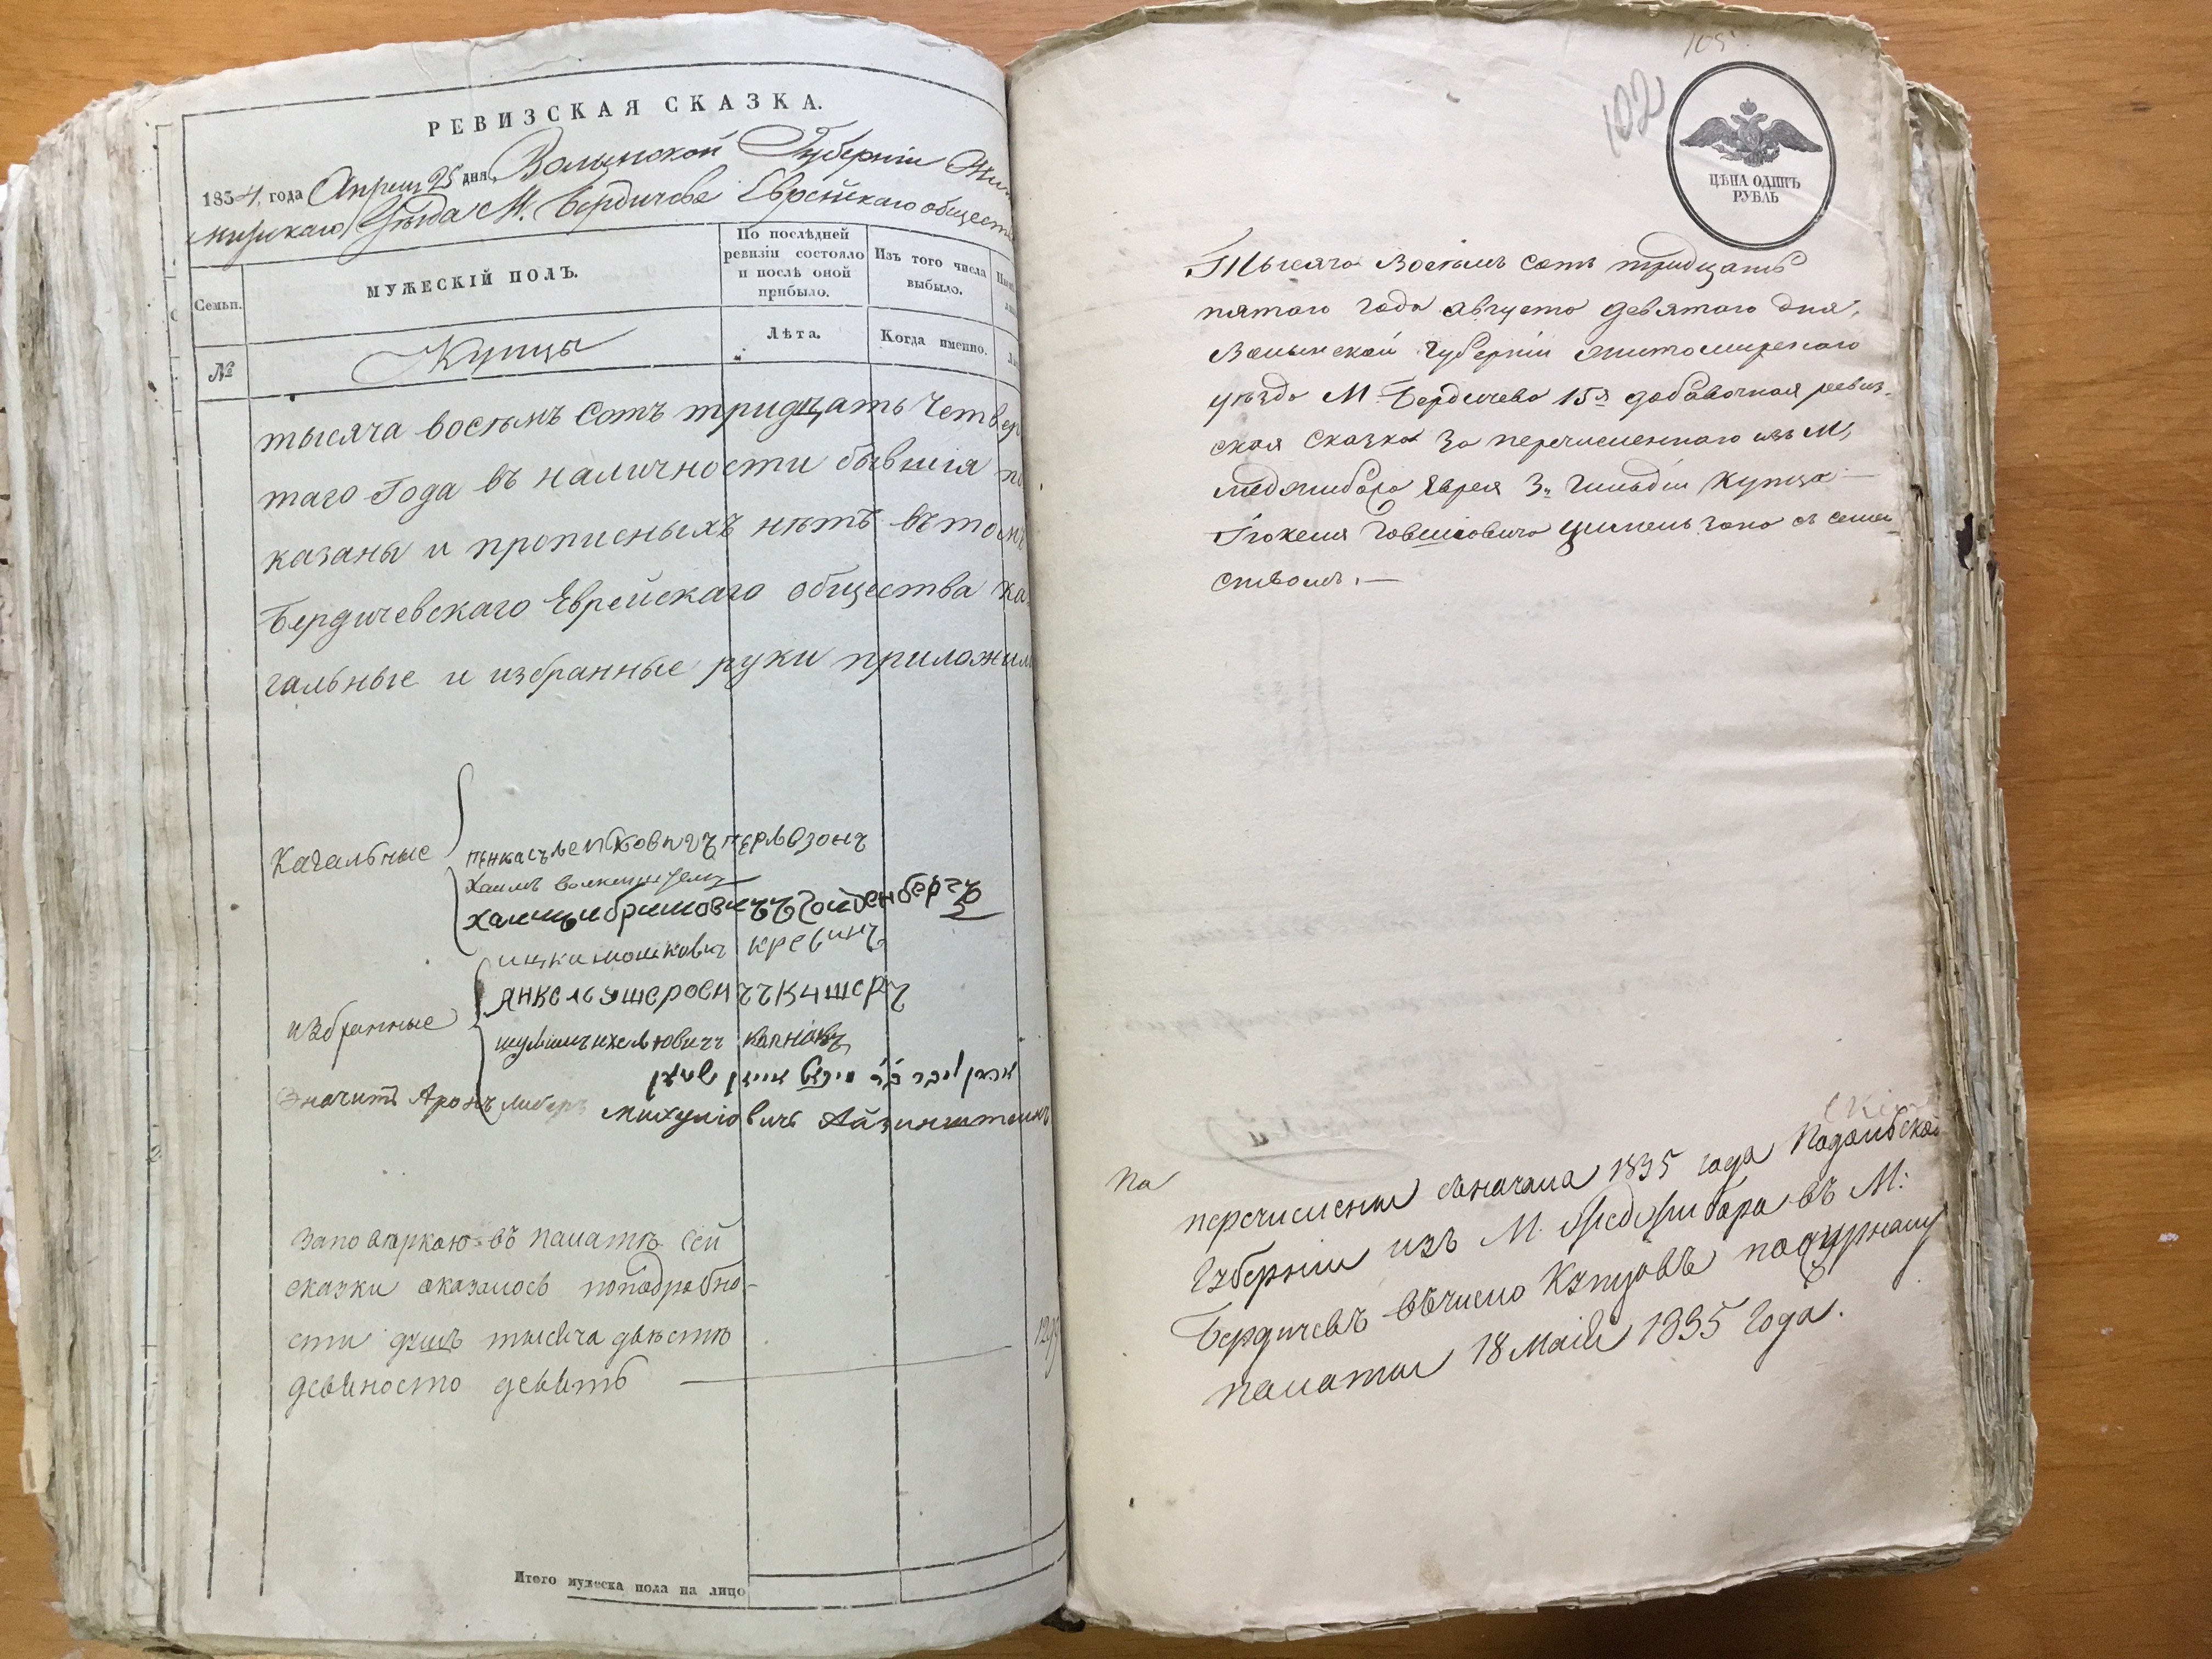 РЕВИЗСКАЯ СКАЗКА.
1834 года Апреля 25 дня, Волынской Губерніи Жи
мирскаго Уѣзда М. Бердичева Еврейскаго общест
Семьи.
МУЖЕСКІЙ ПОЛЪ.
По послѣдней ревизіи состояло и послѣ оной прибыло.
Изъ того числа выбыло.
№
Купцы
Лѣта.
Когда именно.
тысяча восемь сотъ тридцать четвер
таго Года въ наличности бывшія по
казаны и прописныхъ нѣтъ въ томъ
Бердичевскаго Еврейскаго общества ка
гальные и избранные руки приложили
Кагальные
пинкасъ перлзонъ
Хаимъ
Гольденбергъ
ицка мошковичъ кревинъ
Избранные
Янкель
Значитъ Аронъ Либеръ Айзинштейнъ
За повѣркою въ палатѣ сей
сказки оказалось по подробно-
сти душъ тысяча двѣстѣ
девяносто девять 1299
Итого мужеска пола на лицо
105
102
ЦѢНА ОДИНЪ
РУБЛЬ
Тысяча восемь сотъ тридцать
пятаго года августа девятаго дня,
Волынской губерніи Житомирскаго
уѣзда М. Бердичева 15я добавочная ревиз-
ская сказка за перечисленнаго изъ М,
Меджибожа Еврея 3й Гильдіи Купца
съ семей-
ствомъ. —
По
перечисленіи съ начала 1835 года Подольской
Губерніи изъ М. Меджибожа въ М:
Бердичевъ въ число Купцовъ по журналу
палаты 18 Маія 1835 Года.